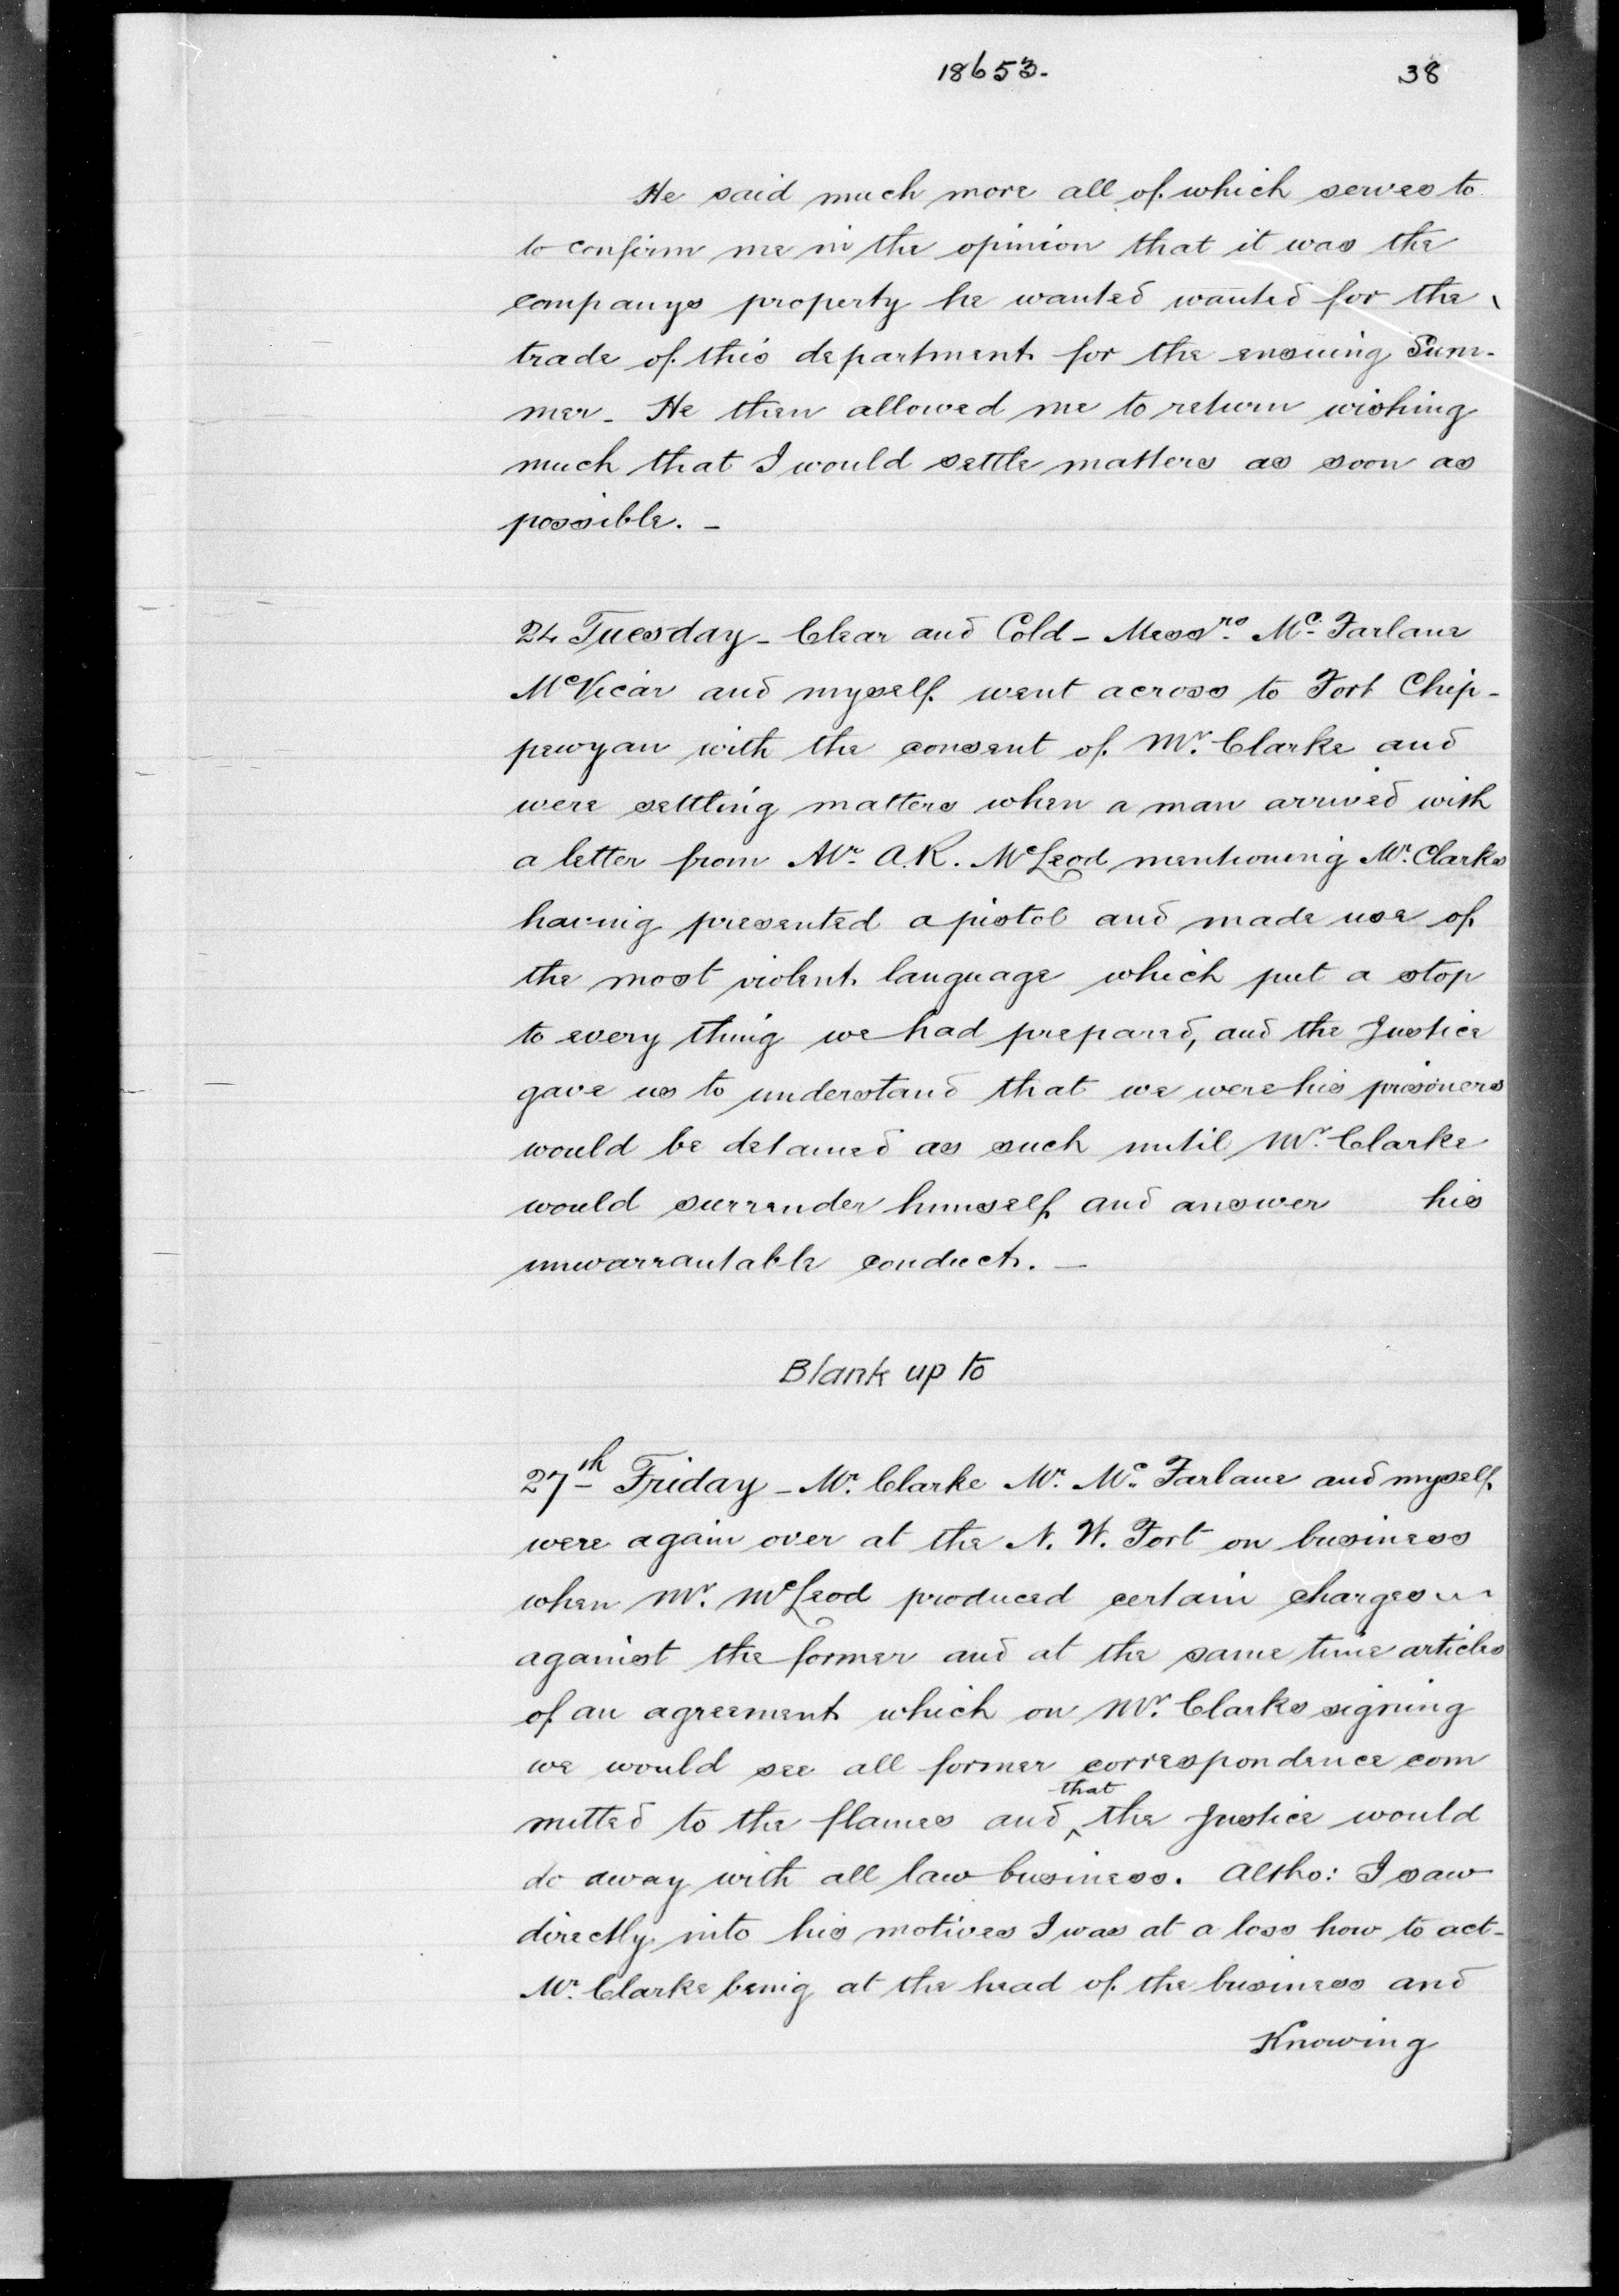 18653. 38
He said much more all of which serves to
to confirm me in the opinion that it was the
companys property he wanted wanted for the
trade of this department for the ensuing Sum-
mer - He then allowed me to return wishing
much that I would settle matters as soon as
possible. -
24 Tuesday - Clear and Cold - Messrs. Mc. Farlane
McVicar and myself went across to Fort Chip-
pewyan with the consent of Mr. Clarke and
were settling matters when a man arrived with
a letter from Mr. A.R. McLeod mentioning Mr. Clarks
having presented a pistol and made use of
the most violent language which put a stop
to every thing we had prepared, and the Justice
gave us to understand that we were his prisoners
would be detained as such until Mr. Clarke
would surrender himself and answer his
unwarrantable conduct. -
Blank up to
27th Friday - Mr. Clarke Mr. Mc. Farlane and myself
were again over at the N. W. Fort on business
when Mr. McLeod produced certain charges
against the former and at the same time articles
of an agreement which on Mr. Clarks signing
we would see all former correspondence com
mitted to the flames and that the Justice would
do away with all law business. Altho: I saw
directly into his motives I was at a loss how to act -
Mr. Clarke being at the head of the business and
Knowing